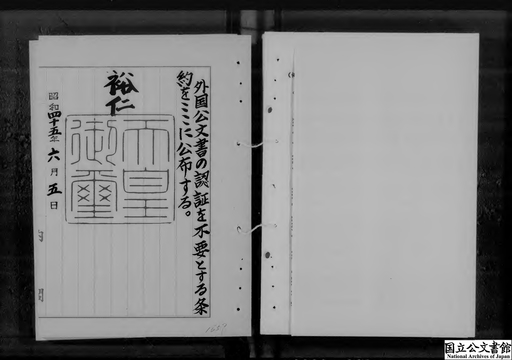 外国公文書の認証を不要とする条
約をここに公布する。
裕仁
天皇
御璽
昭和四十五年六月五日
国立公文書館
National Archives of Japan